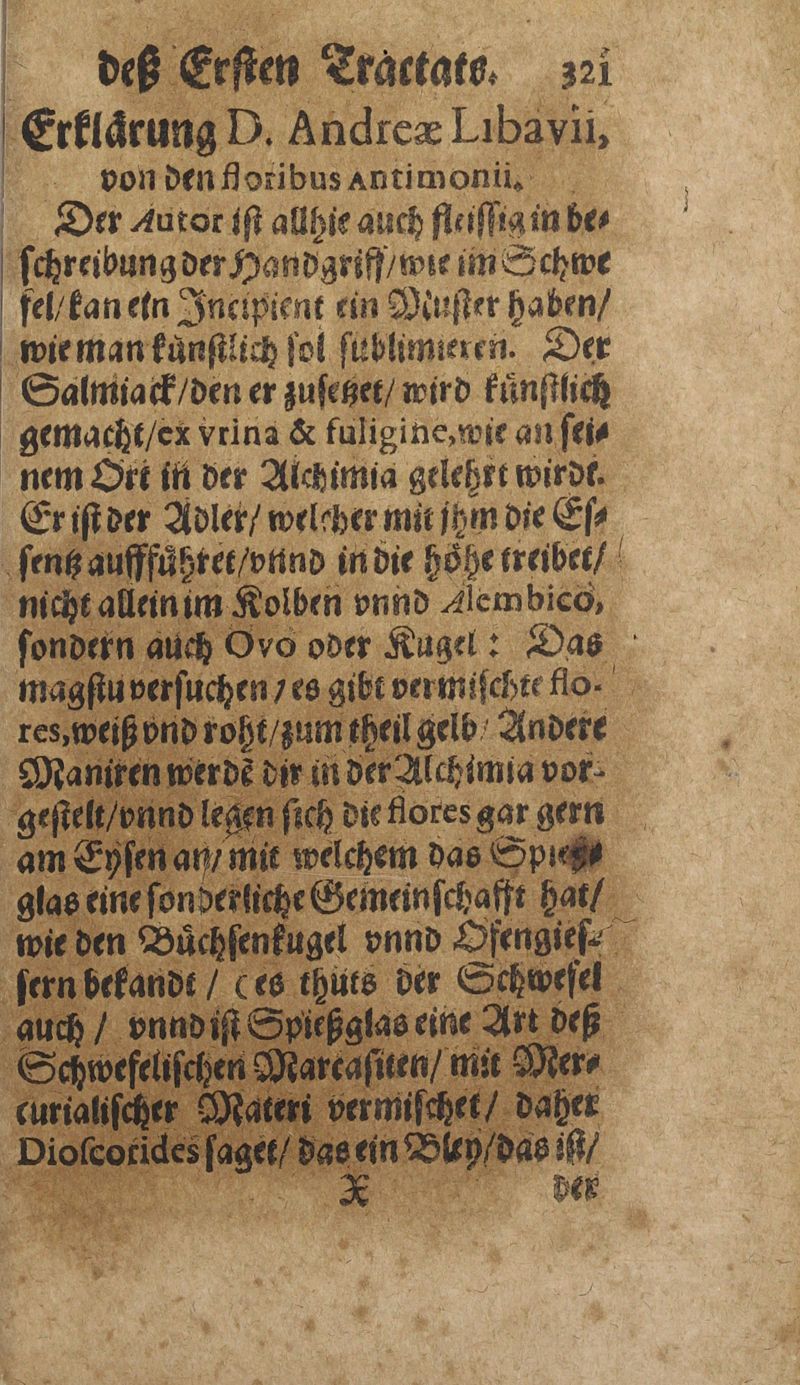 deß Ersten Tractats. 321
Erklärung D. Andreæ Libavii,
von den floribus Antimonii.
Der Autor ist allhie auch fleissig in be⸗
schreibung der Handgriff/ wie im Schwe
fel/ kan ein Incipient ein Muster haben/
wie man künstlich sol sublimieren. Der
Salmiack/ den er zusetzet/ wird künstlich
gemacht/ ex vrina & fuligine, wie an sei⸗
nem Ort in der Alchimia gelehrt wirdt.
Er ist der Adler/ welcher mit jhm die Es⸗
sentz auffführet/ vnnd in die höhe treibet/
nicht allein im Kolben vnnd Alembico,
sondern auch Ovo oder Kugel: Das
magstu versuchen/ es gibt vermischte flo-
res, weiß vnd roht/ zum theil gelb/ Andere
Maniren werdē dir in der Alchimia vor-
gestelt/ vnnd legen sich die flores gar gern
am Eysen an/ mit welchem das Spieß⸗
glas eine sonderliche Gemeinschafft hat/
wie den Büchsenkugel vnnd Ofengies⸗
sern bekandt / (es thuts der Schwefel
auch / vnnd ist Spießglas eine Art deß
Schwefelischen Marcasiten/ mit Mer⸗
curialischer Materi vermischet/ daher
Dioscorides saget/ das ein Bley/ das ist/
X der